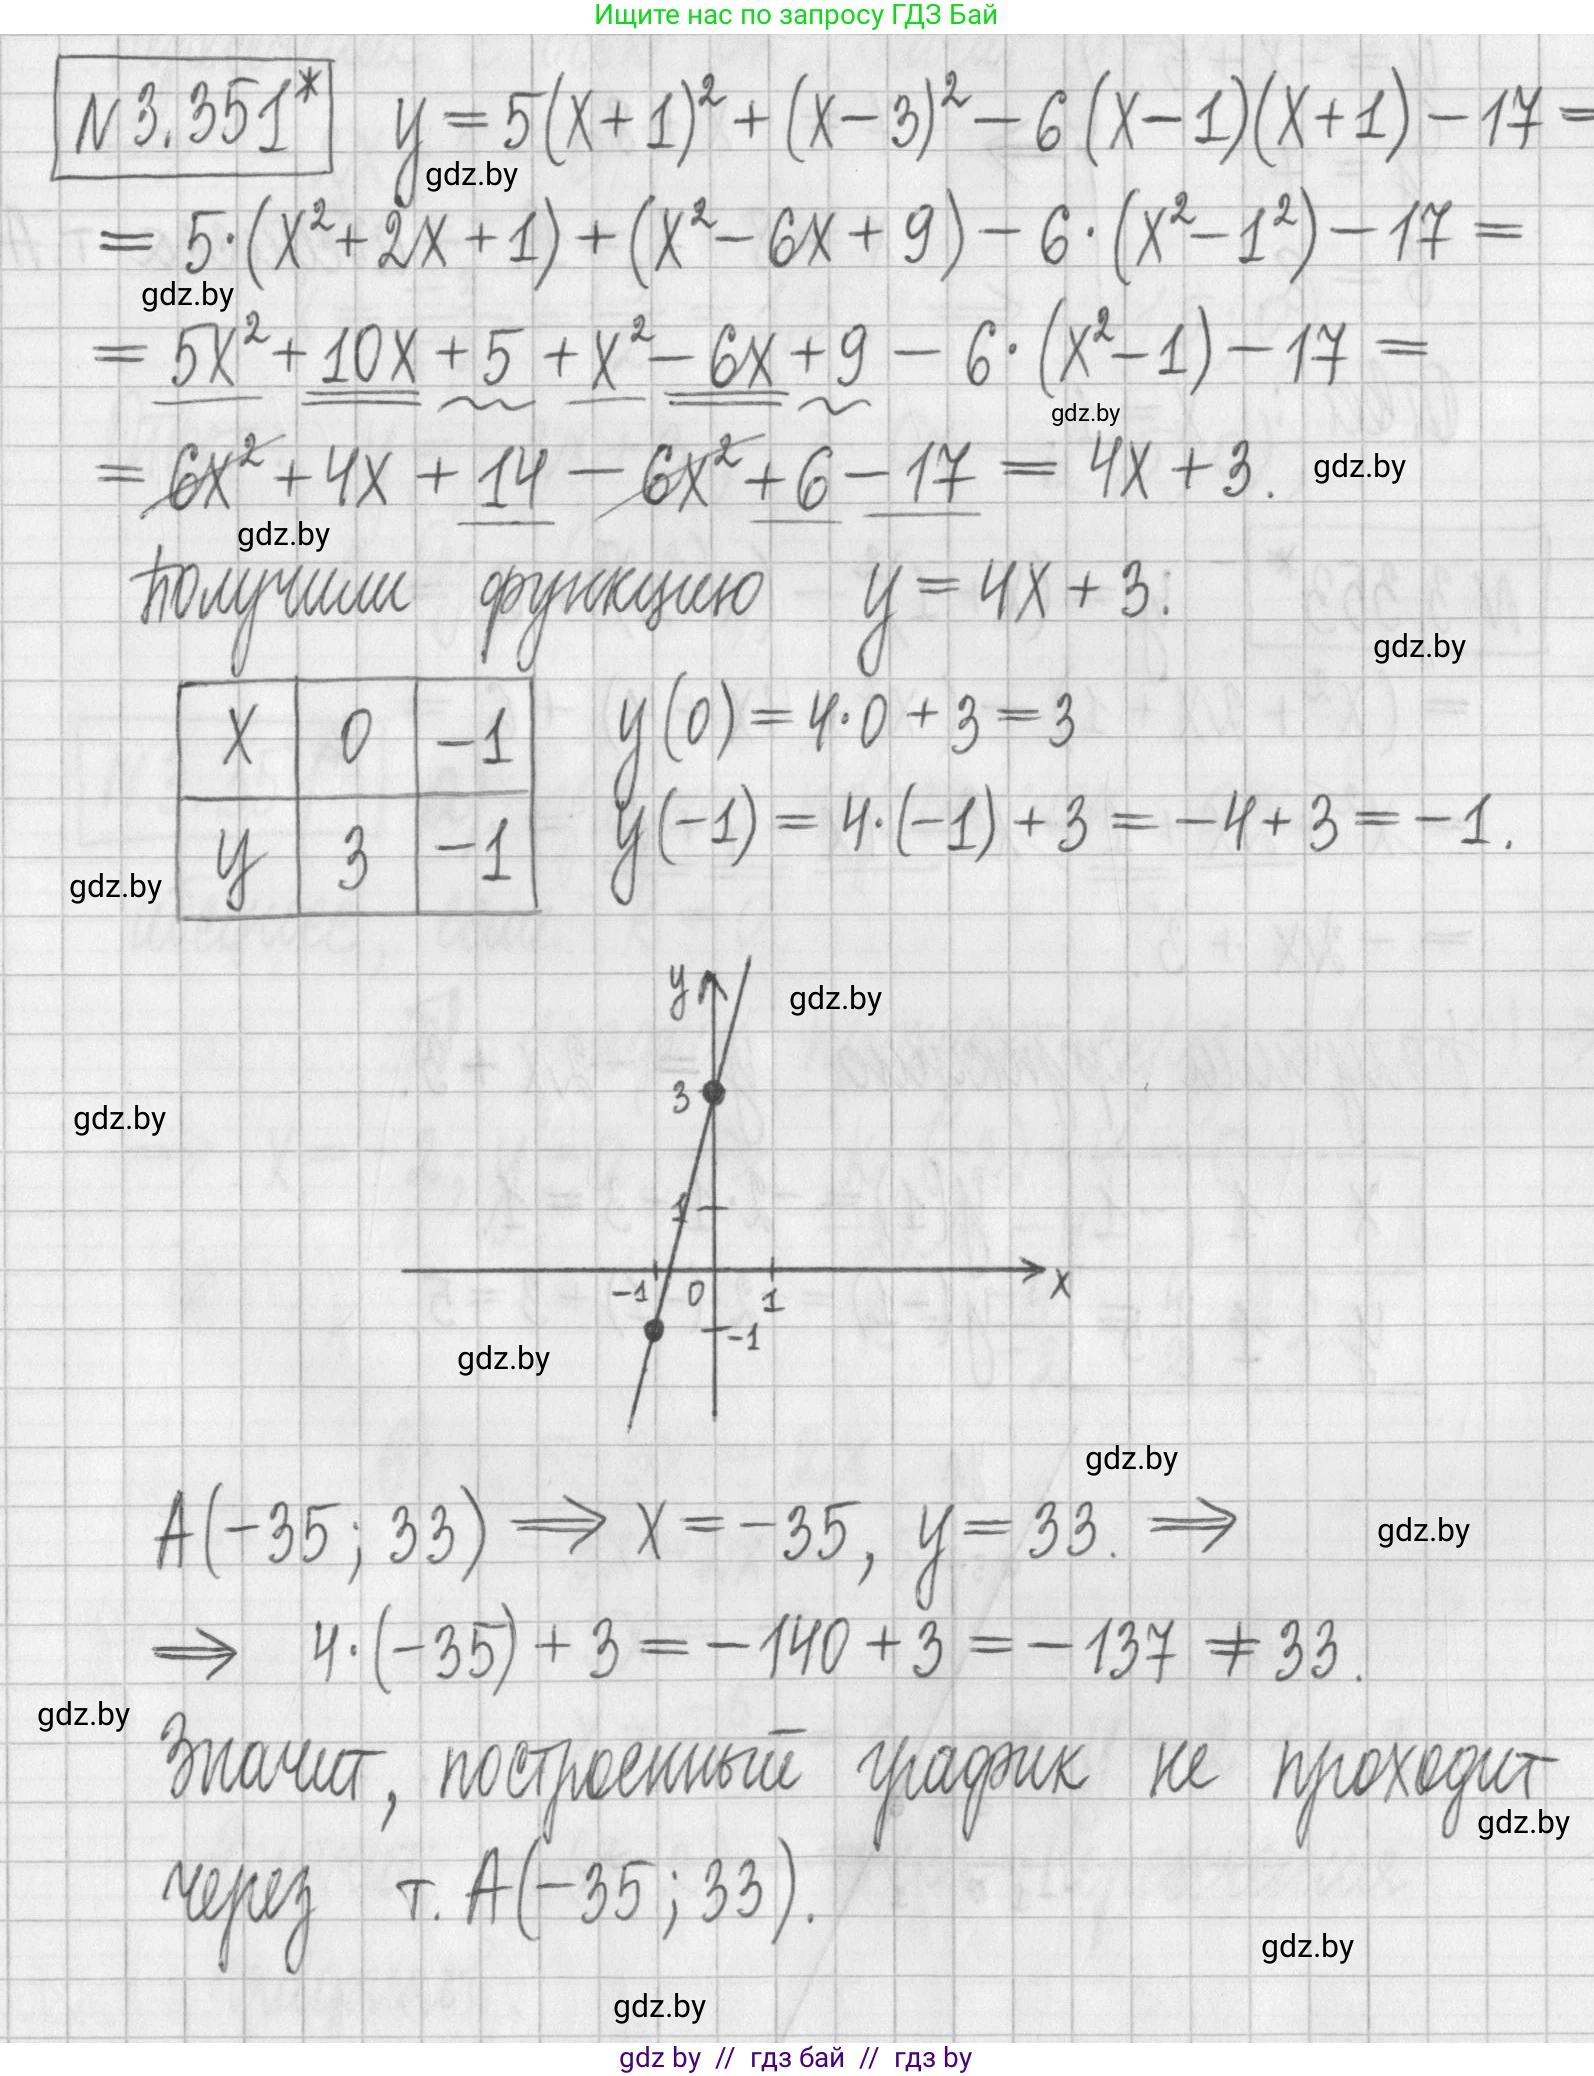 Ищите нас по запросу ГДЗ Бай
N 3.351* y = 5(x+1)² + (x-3)² - 6(x-1)(x+1) - 17 =
gdz.by
= 5·(x²+2x+1) + (x²-6x+9) - 6·(x²-1²) - 17 =
gdz.by
= 5x² + 10x + 5 + x² - 6x + 9 - 6·(x²-1) - 17 =
gdz.by
= 6x² + 4x + 14 - 6x² + 6 - 17 = 4x + 3. gdz.by
gdz.by
Получили функцию y = 4x + 3:
gdz.by
x 0 -1 y(0) = 4·0 + 3 = 3
y 3 -1 y(-1) = 4·(-1) + 3 = -4 + 3 = -1.
gdz.by
y gdz.by
3
gdz.by
1
-1 0 1 x
-1
gdz.by
gdz.by
A(-35; 33) ⟹ x = -35, y = 33. ⟹ gdz.by
⟹ 4·(-35) + 3 = -140 + 3 = -137 ≠ 33.
gdz.by
Значит, построенный график не проходит
gdz.by
через т. A(-35; 33).
gdz.by
gdz.by
gdz by // гдз бай // гдз by